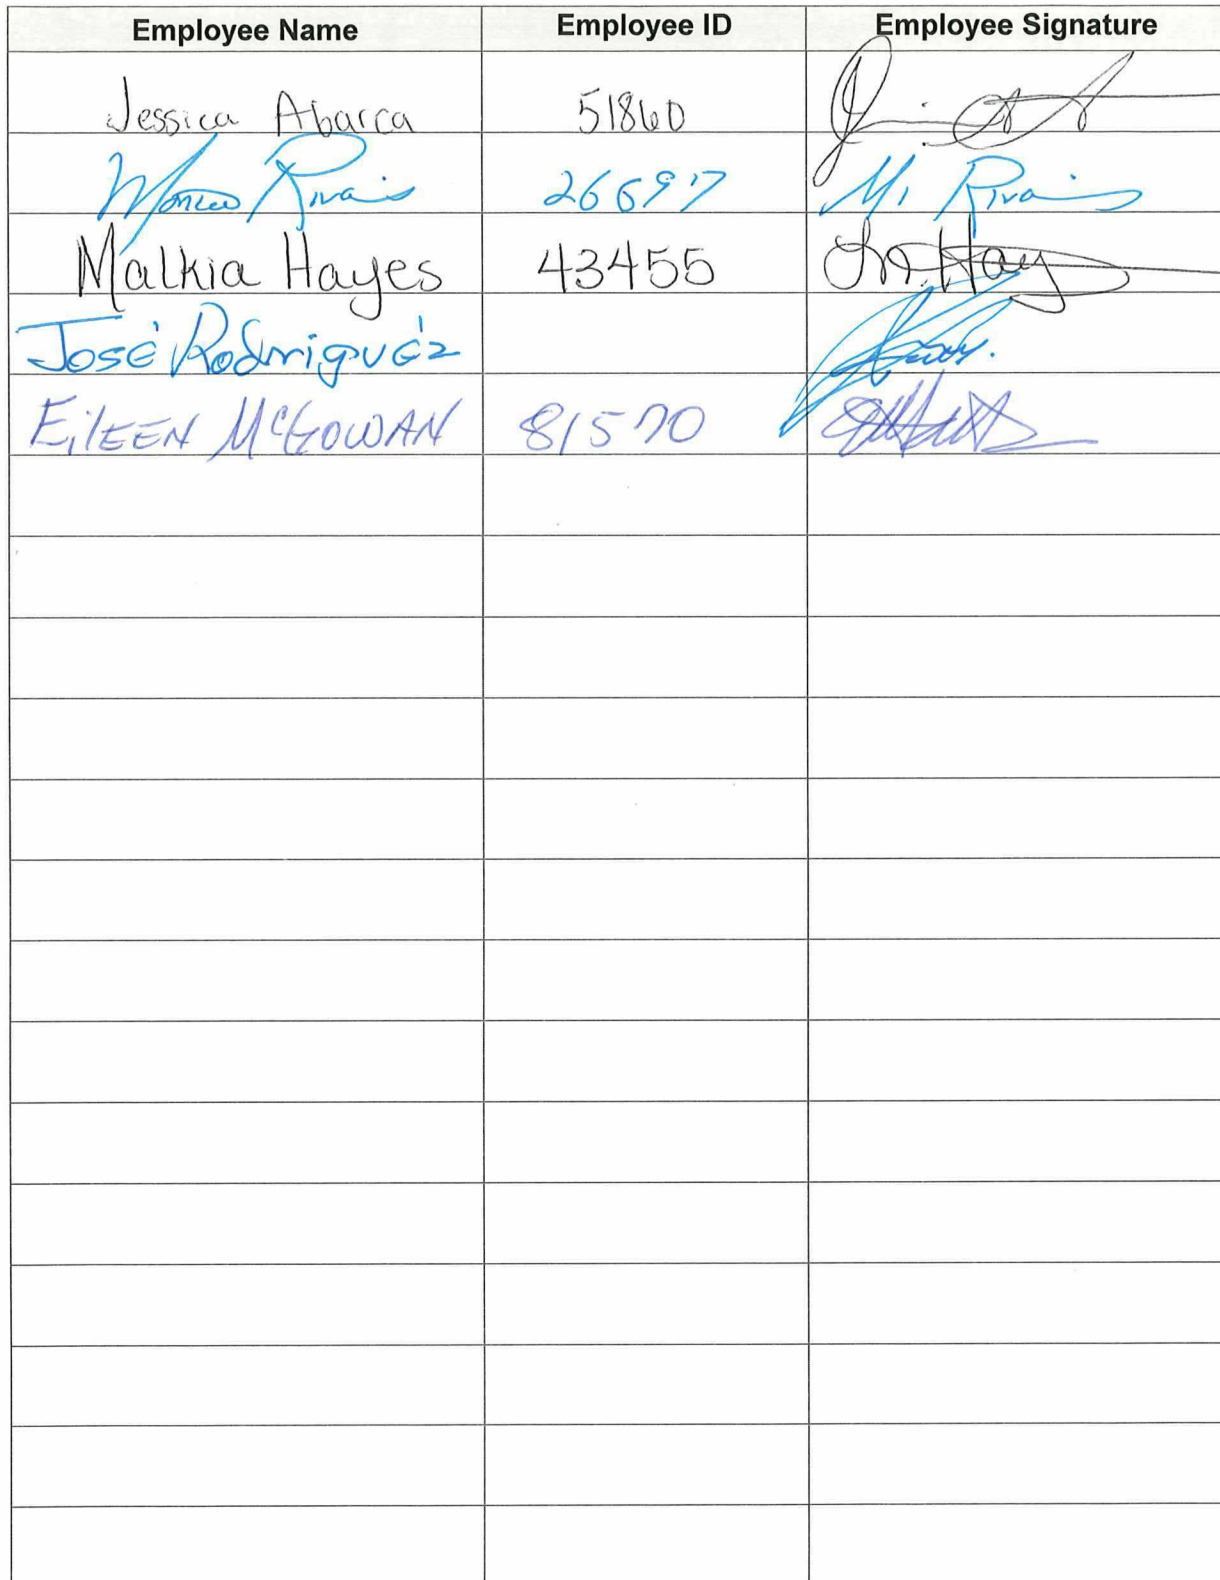 Employee Name Employee ID Employee Signature
Jessica Abarca 51860
26697 M. Rivas
Malkia Hayes 43455 M. Hay
José Rodriguéz
EilEEN McGOWAN 81570